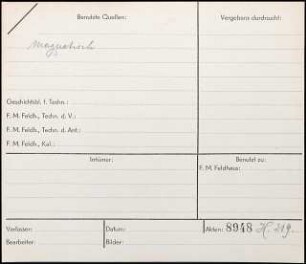 Benutzte Quellen:
Vergebens durchsucht:
Geschichtsbl. f. Techn.:
F. M. Feldh., Techn. d. V.:
F. M. Feldh., Techn. d. Ant.:
F. M. Feldh., Kal.:
Irrtümer:
Benutzt zu:
F. M. Feldhaus:
Verfasser:
Datum:
Akten: 8948
Bearbeiter:
Bilder: